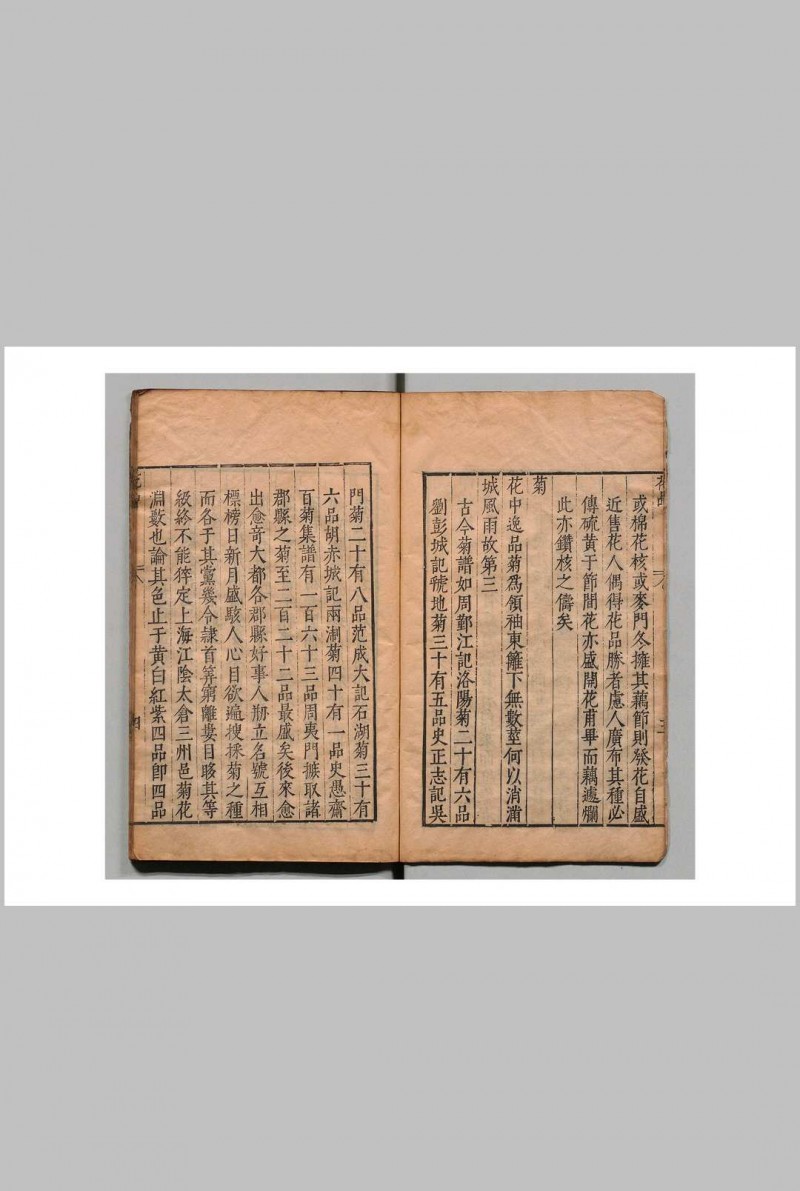 或棉花核或麥門冬擁其藕節則發花自盛
近售花人偶得花品勝者慮人廣布其種必
傳硫黃于節間花亦盛開花甫畢而藕遽爛
此亦鑽核之儔矣
菊
花中逸品菊為領袖東籬下無數莖何以消滿
城風雨故第三
古今菊譜如周鄞江記洛陽菊二十有六品
劉彭城記虢地菊三十有五品史正志記吳
門菊二十有八品范成大記石湖菊三十有
六品胡赤城記兩淛菊四十有一品史愚齋
百菊集譜有一百六十三品周夷門摭取諸
郡縣之菊至二百二十二品最盛矣後來愈
出愈奇大都各郡縣好事人剏立名號互相
標榜日新月盛駭人心目欲遍搜採菊之種
而各于其黨幾令隸首筭窮離婁目眵其等
級終不能猝定上海江陰太倉三州邑菊花
淵藪也論其色止于黃白紅紫四品卽四品
四